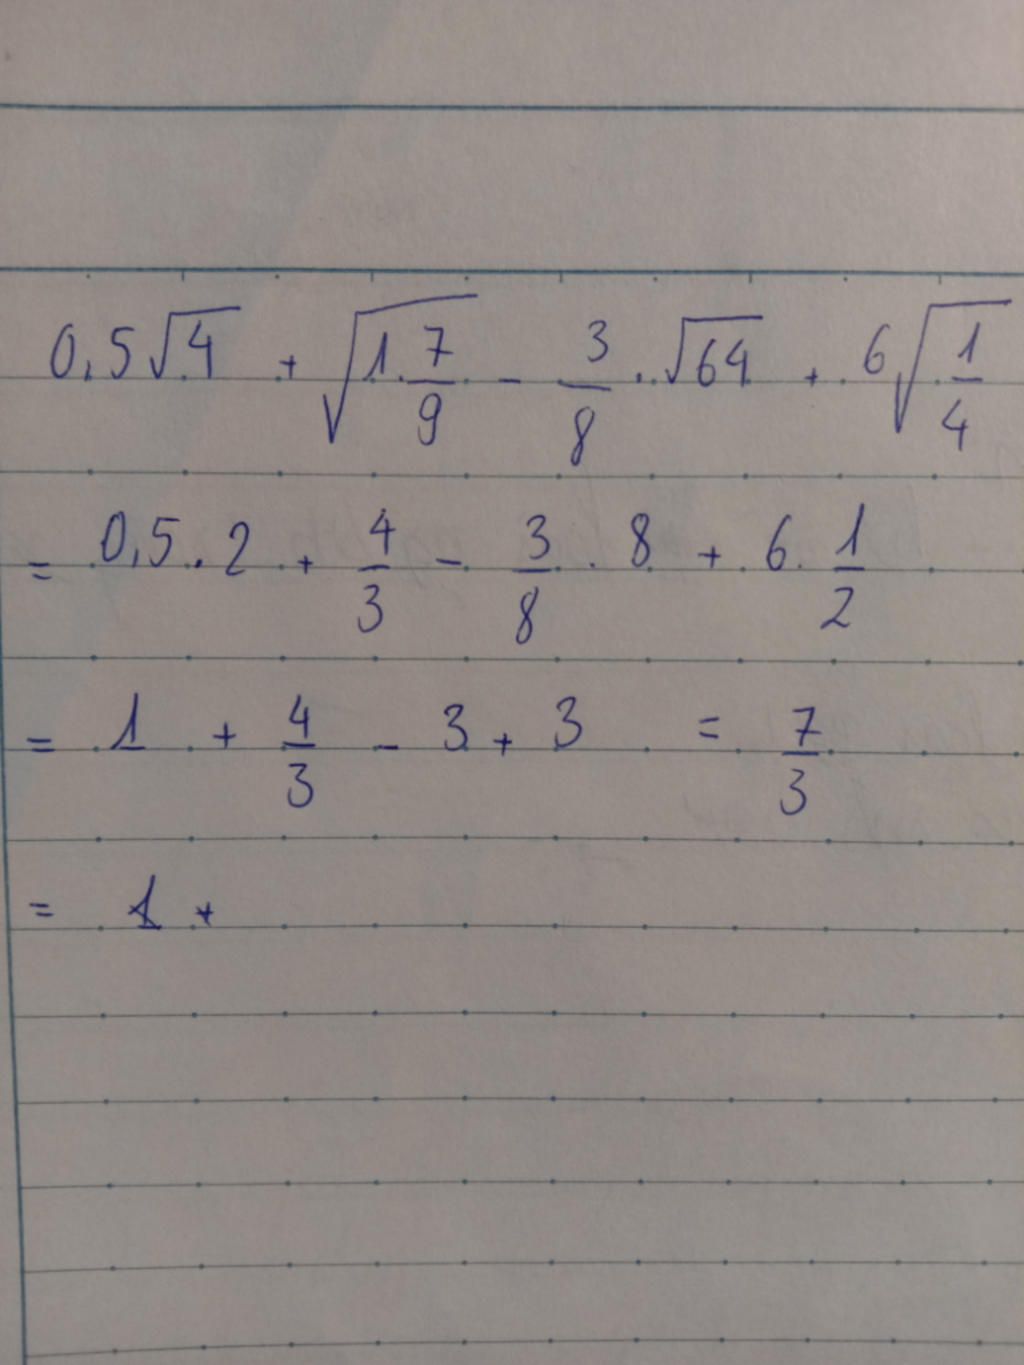 0,5√4 + √(1 7/9) - 3/8 . √64 + 6√(1/4)
= 0,5 . 2 + 4/3 - 3/8 . 8 + 6 . 1/2
= 1 + 4/3 - 3 + 3 = 7/3
= 1 +